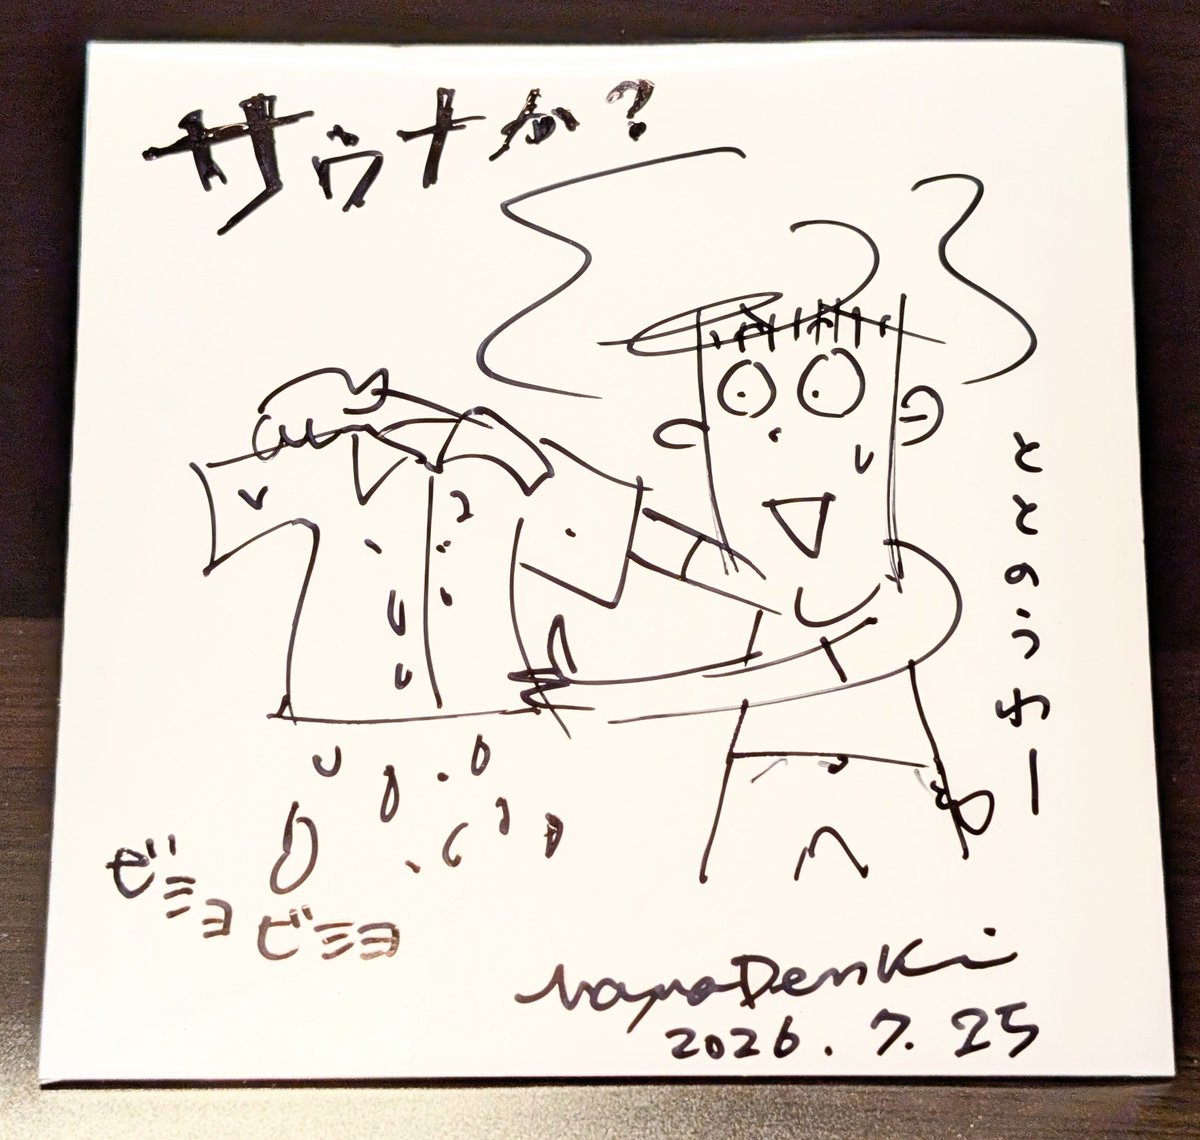 サウナか?
ととのうわー
ビミョビミョ
MaywaDenki
2026.7.25